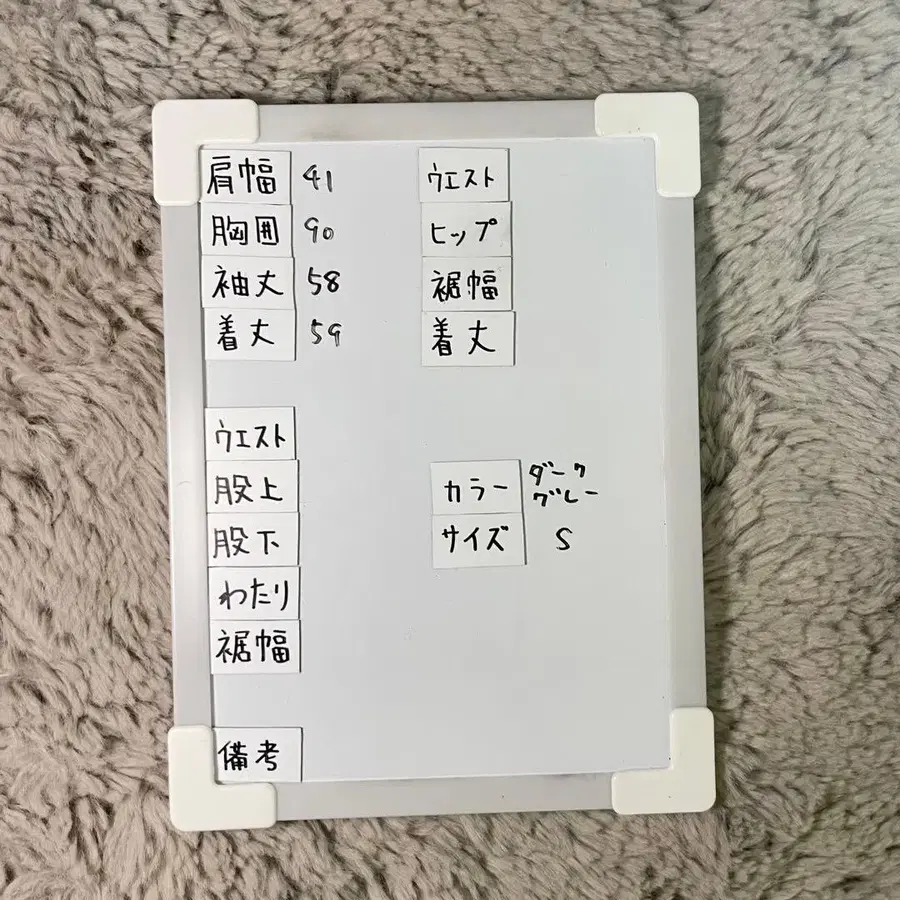 肩幅 41
胸囲 90
袖丈 58
着丈 59
ウエスト
ヒップ
裾幅
着丈
ウエスト
股上
股下
わたり
裾幅
カラー ダーク
グレー
サイズ S
備考